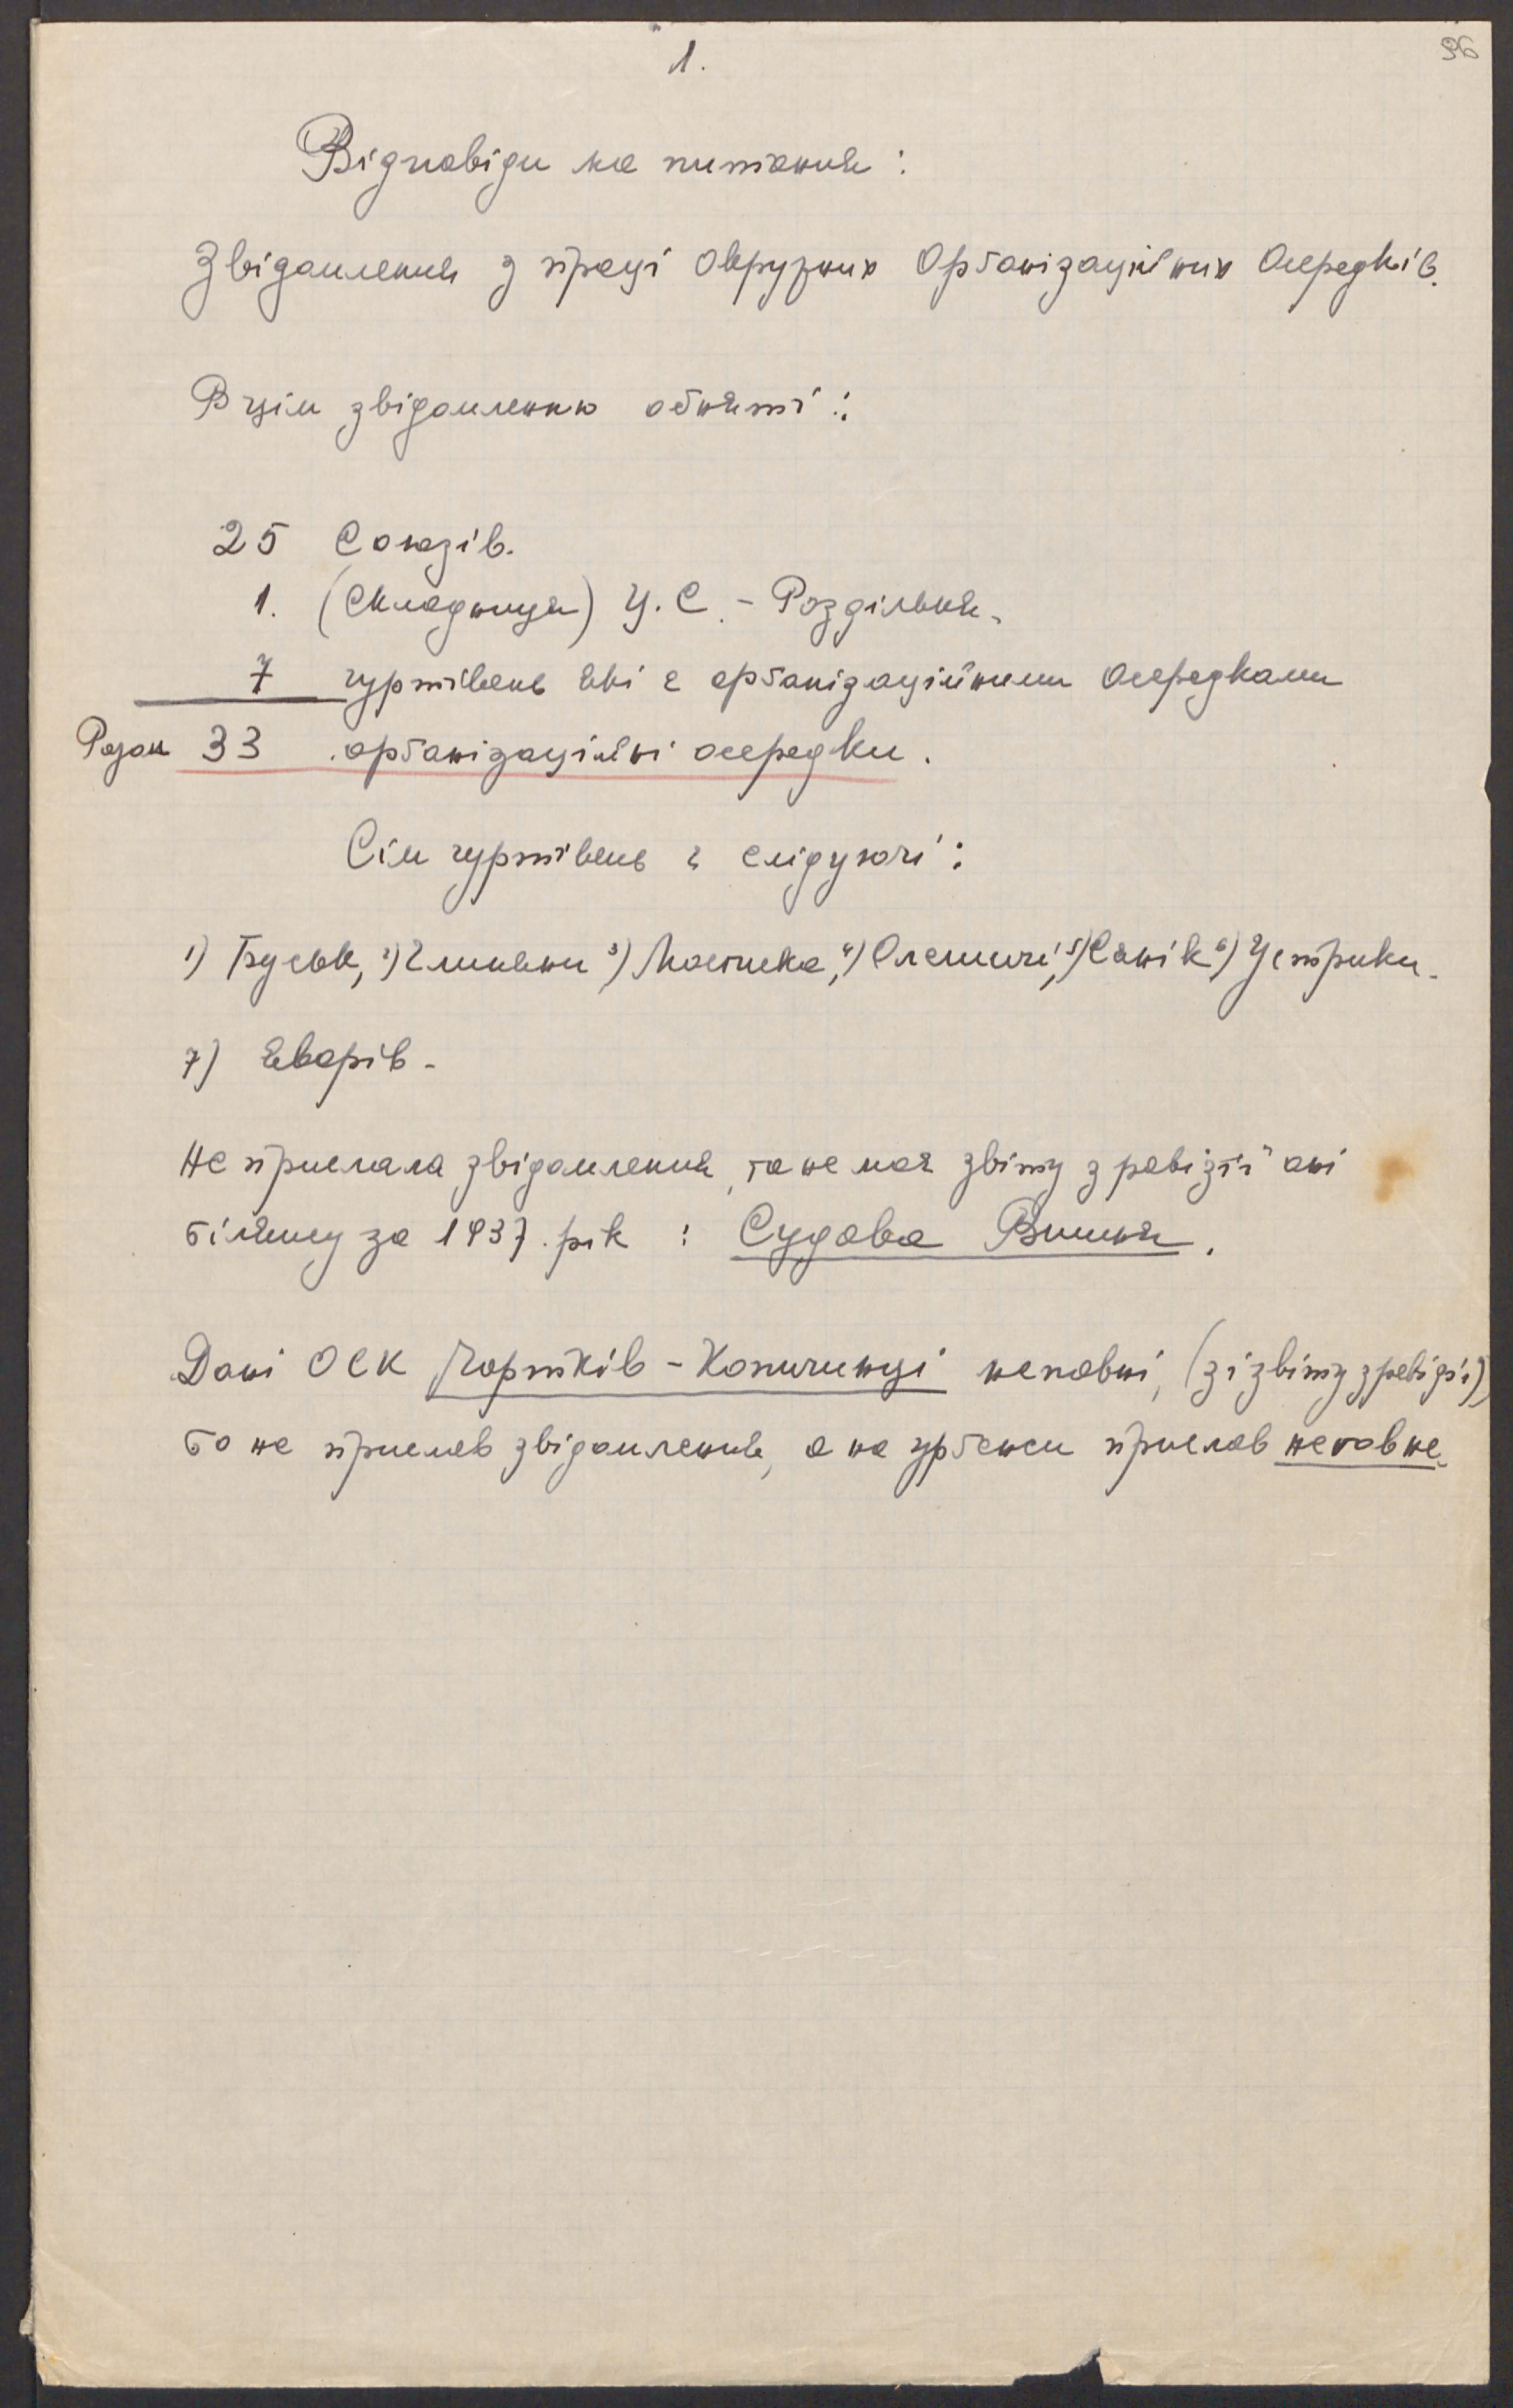 1.
96
Відповіди на питання:
Звідомлення з праці Окружних Орґанізаційних Осередків.
В цім звідомленню обняті:
25 Союзів.
1. (Складниця) Ц.С. - Роздільня.
7 гуртівень які є орґанізаційними Осередками
Разом 33 орґанізаційні осередки.
Сім гуртівень є слідуючі:
1) Буськ, 2) Глиняни 3) Мостиска, 4) Олешичі, 5) Сянік 6) Устрики.
7) Яворів.
Не прислала звідомлення, та не має звіту з ревізії ані
білянсу за 1937. рік : Судова Вишня.
Дані ОСК Чортків - Копичинці неповні, (зі звіту з ревізії)
бо не прислав звідомлення, а на урґенси прислав неповне.